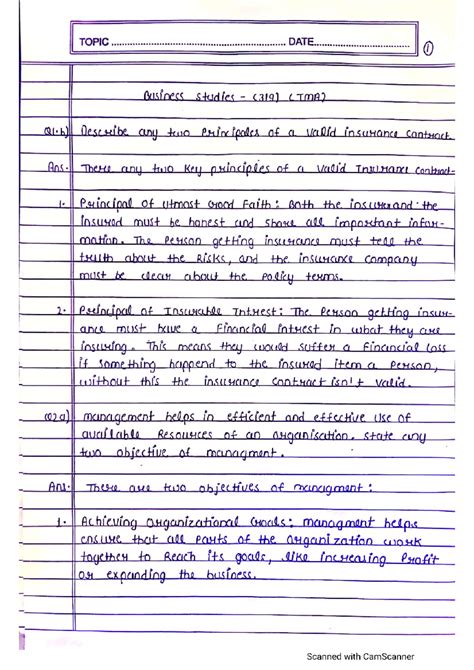 TOPIC ........................ DATE....................
1
Business Studies - (319) (TMA)
Q1.b) Describe any two Principoles of a valid insurance contract.
Ans. There any two key principles of a valid Insurance contract-
1. Principal of Utmost Good Faith: Both the insurer and the
insured must be honest and share all important infor-
mation. The Person getting insurance must tell the
truth about the Risks, and the insurance Company
must be clear about the Policy terms.
2. Principal of Insurable Intrest: The Person getting insur-
ance must have a Financial intrest in what they are
insuring. This means they would suffer a Financial loss
if something happend to the insured item a Person,
without this the insurance Contract isn't valid.
Q2.a) Management helps in efficient and effective use of
available Resources of an organisation. state any
two objective of managment.
Ans. There are two objectives of managment:
1. Achieving Organizational Goals: managment helps
ensure that all parts of the organization work
together to Reach its goals, like increasing Profit
or expanding the business.
Scanned with CamScanner